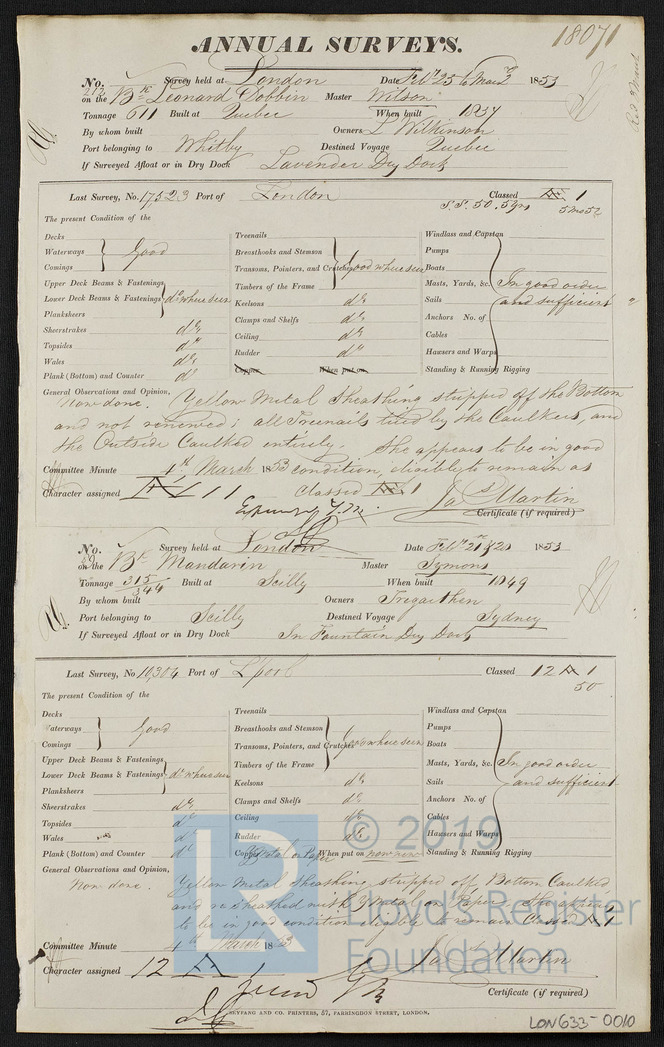 18071
ANNUAL SURVEYS.
No. 212 Survey held at London Date Feby 25 to March 2 1853
on the Bk Leonard Dobbin Master Wilson
Tonnage 611 Built at Quebec When built 1837
By whom built Owners L Wilkinson
Port belonging to Whitby Destined Voyage Quebec
If Surveyed Afloat or in Dry Dock Lavender Dry Dock
Last Survey, No. 17523 Port of London Classed Æ 1
S.S. 50. 5yrs 5 mo 52
The present Condition of the
Decks
Waterways Good
Comings
Upper Deck Beams & Fastenings
Lower Deck Beams & Fastenings do where seen
Planksheers
Sheerstrakes do
Topsides do
Wales do
Plank (Bottom) and Counter do
Treenails
Breasthooks and Stemson
Transoms, Pointers, and Crutches Good where seen
Timbers of the Frame
Keelsons do
Clamps and Shelfs do
Ceiling do
Rudder do
Copper When put on
Windlass and Capstan
Pumps
Boats
Masts, Yards, &c. In good order
Sails and sufficient
Anchors No. of
Cables
Hawsers and Warps
Standing & Running Rigging
General Observations and Opinion,
Now done. Yellow Metal Sheathing stripped off the Bottom
and not renewed; all Treenails tried by the Caulkers, and
the Outside Caulked entirely. She appears to be in good
Committee Minute 4th March 1853 condition, eligible to remain as
Character assigned Æ 1 Classed Æ 1
Jas Martin
Certificate (if required)
No. Survey held at London Date Feby 21 & 28 1853
on the Bk Mandarin Master Symons
Tonnage 315/344 Built at Scilly When built 1849
By whom built Owners Tregarthen
Port belonging to Scilly Destined Voyage Sydney
If Surveyed Afloat or in Dry Dock In Fountain Dry Dock
Last Survey, No. 10304 Port of L'pool Classed 12 A 1
50
The present Condition of the
Decks
Waterways Good
Comings
Upper Deck Beams & Fastenings
Lower Deck Beams & Fastenings do where seen
Planksheers
Sheerstrakes do
Topsides do
Wales do
Plank (Bottom) and Counter do
Treenails
Breasthooks and Stemson
Transoms, Pointers, and Crutches Good where seen
Timbers of the Frame
Keelsons do
Clamps and Shelfs do
Ceiling do
Rudder do
Copper Y Metal on Paper When put on now new
Windlass and Capstan
Pumps
Boats
Masts, Yards, &c. In good order
Sails and sufficient
Anchors No. of
Cables
Hawsers and Warps
Standing & Running Rigging
General Observations and Opinion,
Now done. Yellow Metal Sheathing stripped off, Bottom Caulked
and resheathed with Y Metal on Paper. She appears
to be in good condition eligible to remain Classed A 1
Committee Minute 4th March 1853
Jas Martin
Character assigned 12 A 1
Certificate (if required)
NEYPANG AND CO. PRINTERS, 57, FARRINGDON STREET, LONDON.
© 2019
Lloyd's Register
Foundation
LON633-0010